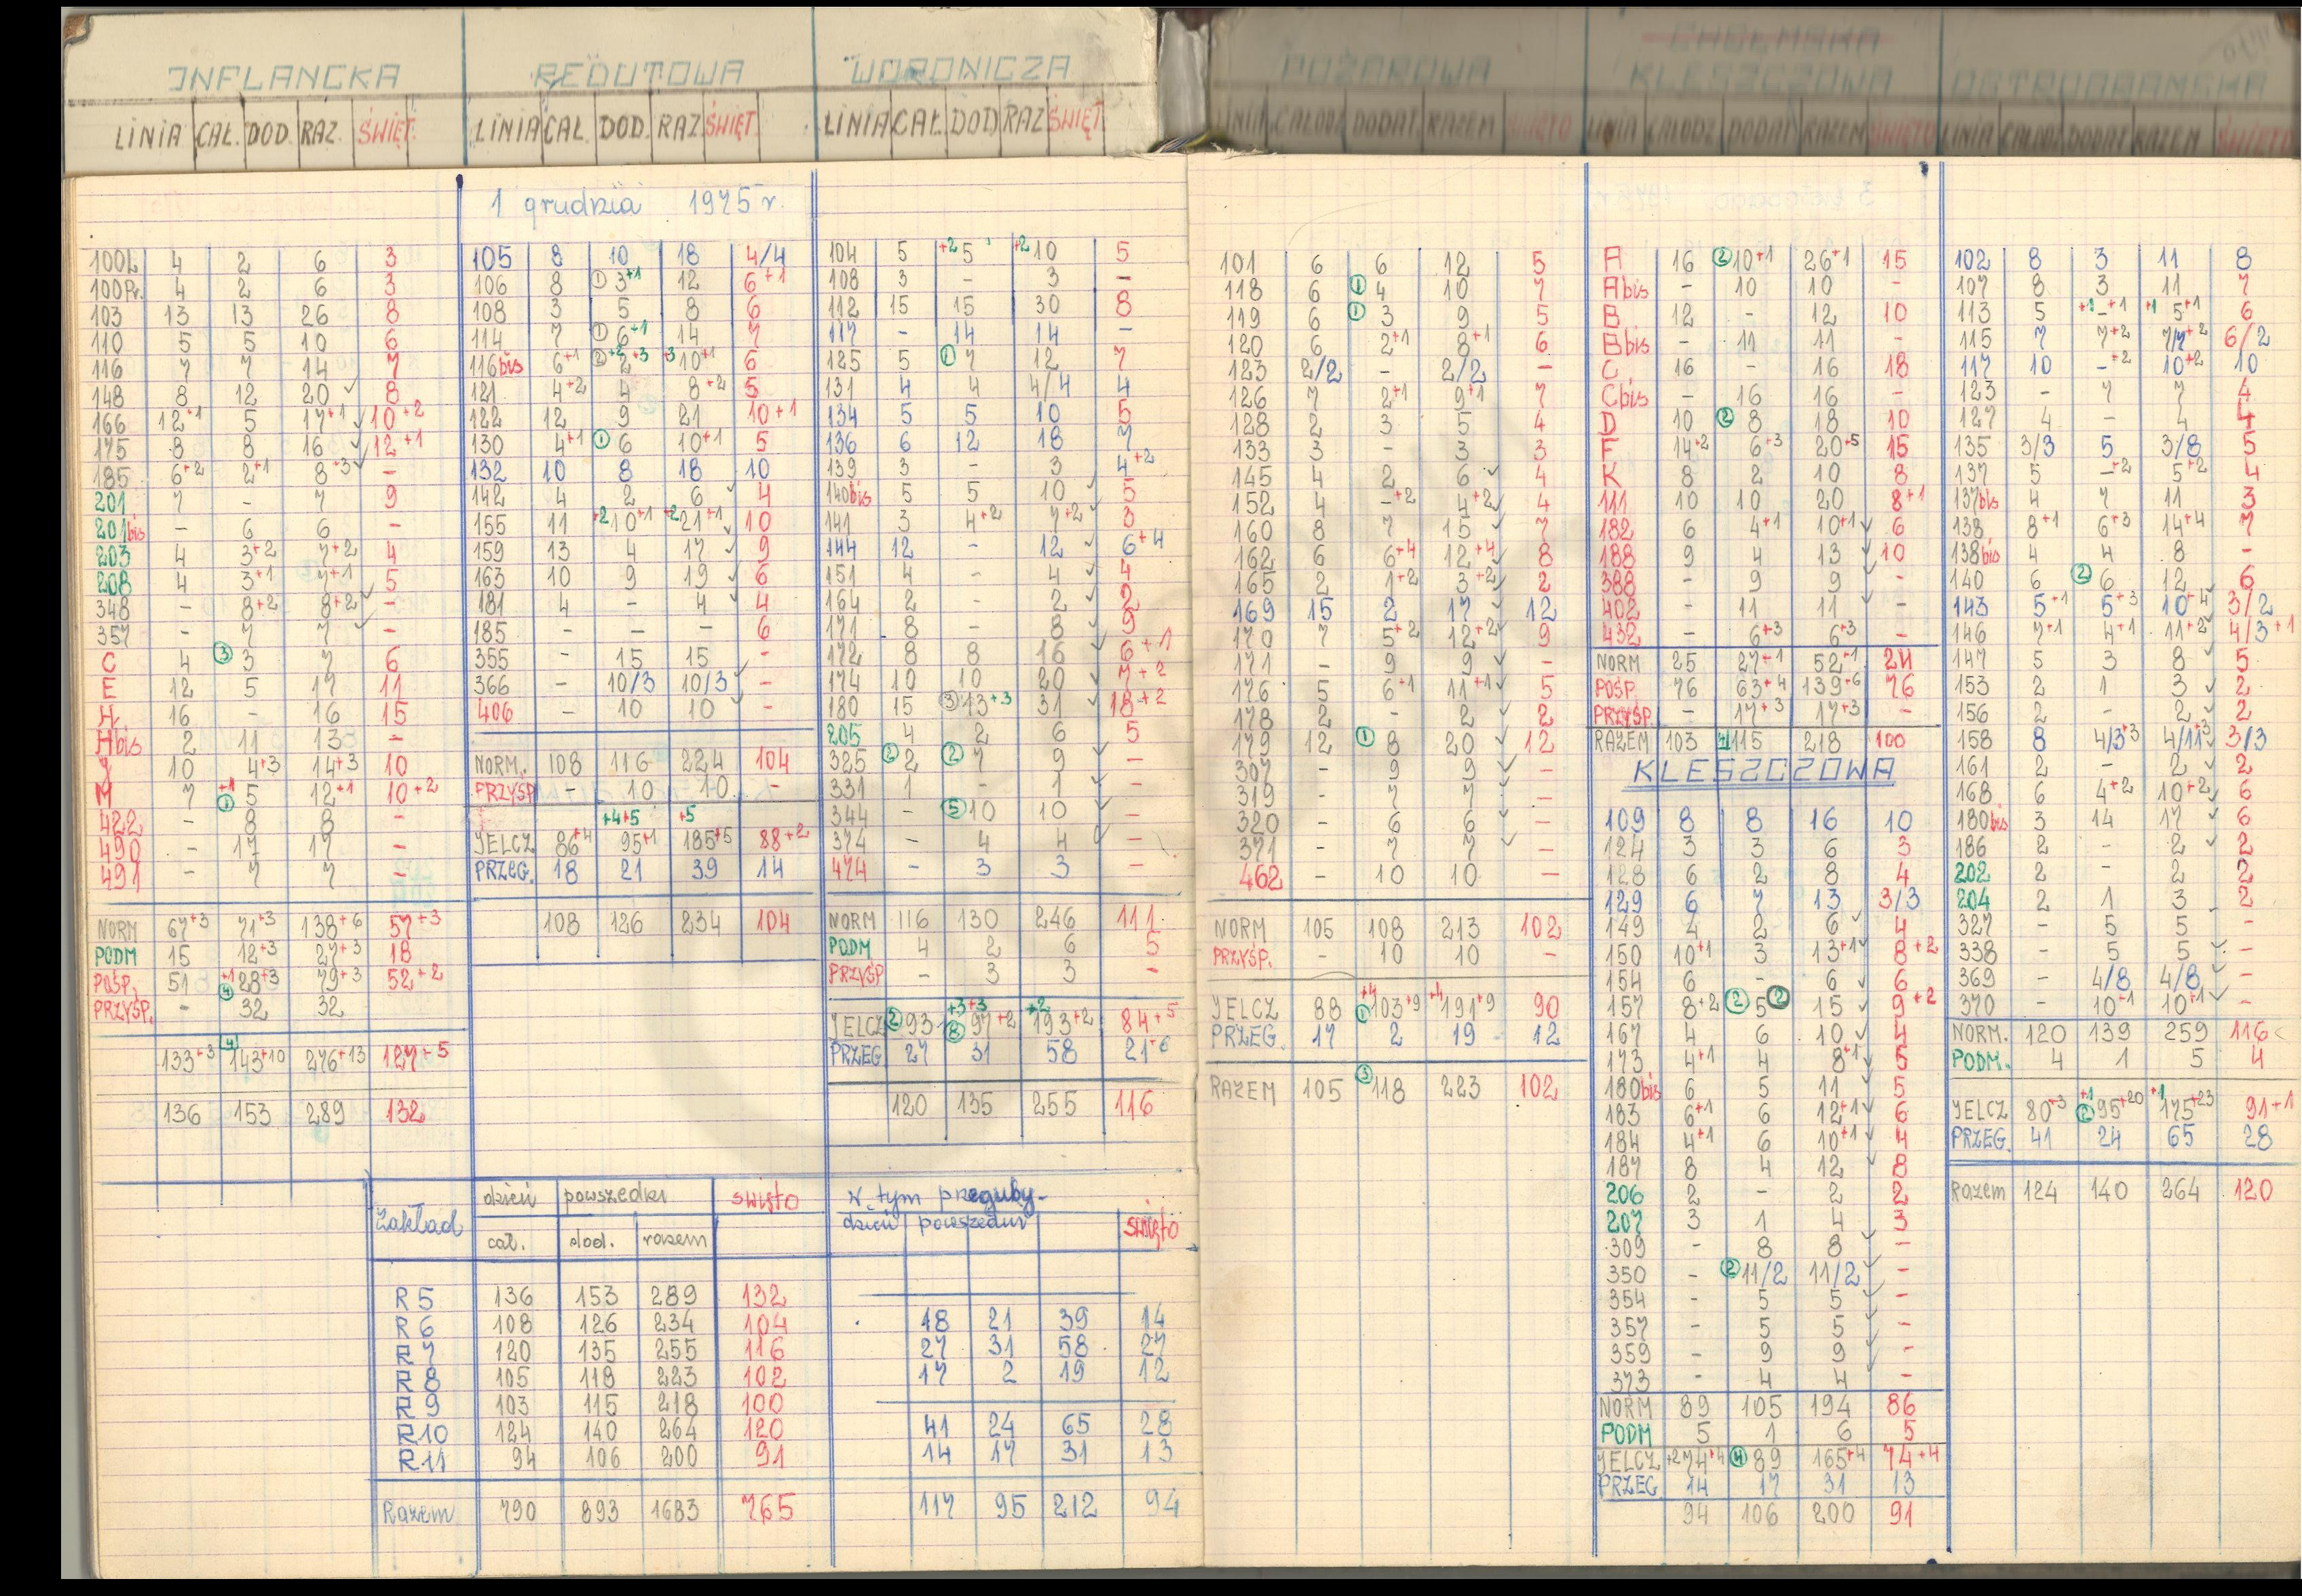 INFLANCKA
LINIA CAŁ. DOD. RAZ. ŚWIĘT.
100L 4 2 6 3
100Pr. 4 2 6 3
103 13 13 26 8
110 5 5 10 6
116 7 7 14 7
148 8 12 20 ✓ 8
166 12+1 5 17+1 ✓ 10+2
175 8 8 16 ✓ 12+1
185 6+2 2+1 8+3 ✓ -
201 7 - 7 9
201bis - 6 6 -
203 4 3+2 7+2 4
208 4 3+1 7+1 ✓ 5
348 - 8+2 8+2 ✓ -
357 - 7 7 ✓ -
C 4 ③ 3 7 6
E 12 5 17 11
H 16 - 16 15
Hbis 2 11 13 -
J 10 4+3 14+3 10
M 7 +1 ① 5 12+1 10+2
422 - 8 8 -
490 - 17 17 -
491 - 7 7 -
NORM 67+3 71+3 138+6 57+3
PODM 15 12+3 27+3 18
POŚP. 51 +1 ④ 28+3 79+3 52+2
PRZYŚP. - 32 32
133+3 4 143+10 276+13 127+5
136 153 289 132
REDUTOWA
LINIA CAŁ. DOD. RAZ ŚWIĘT.
1 grudnia 1975 r.
105 8 10 18 4/4
106 8 ① 3+1 12 6+1
108 3 5 8 6
114 7 ① 6+1 14 7
116bis 6+1 ② +2 2+3 +3 10+1 6
121 4+2 4 8+2 5
122 12 9 21 10+1
130 4+1 ① 6 10+1 5
132 10 8 18 10
142 4 2 6 ✓ 4
155 11 +2 10+1 +2 21+1 ✓ 10
159 13 4 17 ✓ 9
163 10 9 19 ✓ 6
181 4 - 4 ✓ 4
185 - - - 6
355 - 15 15 ✓ -
366 - 10/3 10/3 ✓ -
406 - 10 10 ✓ -
NORM. 108 116 224 104
PRZYŚP - 10 10 -
+4+5 +5
JELCZ 86+4 95+1 185+5 88+2
PRZEG. 18 21 39 14
108 126 234 104
WORONICZA
LINIA CAŁ DOD RAZ ŚWIĘT
104 5 +2 5 +2 10 5
108 3 - 3 -
112 15 15 30 8
117 - 14 14 -
125 5 ① 7 12 7
131 4 4 4/4 4
134 5 5 10 5
136 6 12 18 7
139 3 - 3 4+2
140bis 5 5 10 ✓ 5
141 3 4+2 7+2 ✓ 3
144 12 - 12 ✓ 6+4
151 4 - 4 ✓ 4
164 2 - 2 ✓ 2
171 8 - 8 ✓ 9
172 8 8 16 ✓ 6+1
174 10 10 20 ✓ 7+2
180 15 ③ 13+3 31 ✓ 18+2
205 4 2 6 5
325 ② 2 ② 7 9 ✓ -
331 1 - 1 ✓ -
344 - ⑤ 10 10 ✓ -
374 - 4 4 ✓ -
474 - 3 3 -
NORM 116 130 246 111
PODM 4 2 6 5
PRZYŚP - 3 3 -
JELCZ ② 93 +3+3 ⑧ 97+2 +2 193+2 84+5
PRZEG 27 31 58 21+6
120 135 255 116
Zakład dzień powszedni święto W tym przeguby
cał. dod. razem dzień powszedni święto
R5 136 153 289 132
R6 108 126 234 104 18 21 39 14
R7 120 135 255 116 27 31 58 27
R8 105 118 223 102 17 2 19 12
R9 103 115 218 100
R10 124 140 264 120 41 24 65 28
R11 94 106 200 91 14 17 31 13
Razem 790 893 1683 765 117 95 212 94
POŻAROWA
LINIA CAŁODZ DODAT RAZEM ŚWIĘTO
101 6 6 12 5
118 6 ① 4 10 7
119 6 ① 3 9 5
120 6 2+1 8+1 6
123 2/2 - 2/2 -
126 7 2+1 9+1 7
128 2 3 5 4
133 3 - 3 3
145 4 2 6 ✓ 4
152 4 -+2 4+2 ✓ 4
160 8 7 15 ✓ 7
162 6 6+4 12+4 ✓ 8
165 2 1+2 3+2 ✓ 2
169 15 2 17 ✓ 12
170 7 5+2 12+2 ✓ 9
171 - 9 9 ✓ -
176 5 6+1 11+1 ✓ 5
178 2 - 2 ✓ 2
179 12 ① 8 20 ✓ 12
307 - 9 9 ✓ -
319 - 7 7 ✓ -
320 - 6 6 ✓ -
371 - 7 7 ✓ -
462 - 10 10 -
NORM 105 108 213 102
PRZYŚP. - 10 10 -
JELCZ 88 +4 ① 103+9 +4 191+9 90
PRZEG. 17 2 19 12
RAZEM 105 ③ 118 223 102
KLESZCZOWA
LINIA CAŁODZ DODAT RAZEM ŚWIĘTO
A 16 ② 10+1 26+1 15
Abis - 10 10 -
B 12 - 12 10
Bbis - 11 11 -
C 16 - 16 18
Cbis - 16 16 -
D 10 ② 8 18 10
F 14+2 6+3 20+5 15
K 8 2 10 8
111 10 10 20 8+1
182 6 4+1 10+1 ✓ 6
188 9 4 13 ✓ 10
388 - 9 9 ✓ -
402 - 11 11 ✓ -
432 - 6+3 6+3 -
NORM 25 27+1 52+1 24
POŚP. 76 63+4 139+6 76
PRZYŚP. - 17+3 17+3 -
RAZEM 103 4 115 218 100
KLESZCZOWA
109 8 8 16 10
124 3 3 6 3
128 6 2 8 4
129 6 7 13 3/3
149 4 2 6 ✓ 4
150 10+1 3 13+1 ✓ 8+2
154 6 - 6 ✓ 6
157 8+2 ② 5 ② 15 ✓ 9+2
167 4 6 10 ✓ 4
173 4+1 4 8+1 ✓ 5
180bis 6 5 11 ✓ 5
183 6+1 6 12+1 ✓ 6
184 4+1 6 10+1 ✓ 4
187 8 4 12 ✓ 8
206 2 - 2 2
207 3 1 4 3
309 - 8 8 ✓ -
350 - ② 11/2 11/2 ✓ -
354 - 5 5 ✓ -
357 - 5 5 ✓ -
359 - 9 9 ✓ -
373 - 4 4 ✓ -
NORM 89 105 194 86
PODM 5 1 6 5
JELCZ +2 74+4 ④ 89 165+4 74+4
PRZEG. 14 17 31 13
94 106 200 91
OSTROBRAMSKA
LINIA CAŁODZ DODAT RAZEM ŚWIĘTO
102 8 3 11 8
107 8 3 11 7
113 5 +1 -+1 +1 5+1 6
115 7 7+2 7/7+2 6/2
117 10 -+2 10+2 10
123 - 7 7 4
127 4 - 4 4
135 3/3 5 3/8 5
137 5 -+2 5+2 4
137bis 4 7 11 3
138 8+1 6+3 14+4 7
138bis 4 4 8 -
140 6 ② 6 12 ✓ 6
143 5+1 5+3 10+4 3/2
146 7+1 4+1 11+2 ✓ 4/3+1
147 5 3 8 ✓ 5
153 2 1 3 ✓ 2
156 2 - 2 ✓ 2
158 8 4/3+3 4/11+3 3/3
161 2 - 2 ✓ 2
168 6 4+2 10+2 ✓ 6
180bis 3 14 17 ✓ 6
186 2 - 2 ✓ 2
202 2 - 2 2
204 2 1 3 2
327 - 5 5 -
338 - 5 5 ✓ -
369 - 4/8 4/8 ✓ -
370 - 10+1 10+1 ✓ -
NORM. 120 139 259 116
PODM. 4 1 5 4
JELCZ 80+3 +1 ② 95+20 +1 175+23 91+1
PRZEG. 41 24 65 28
Razem 124 140 264 120